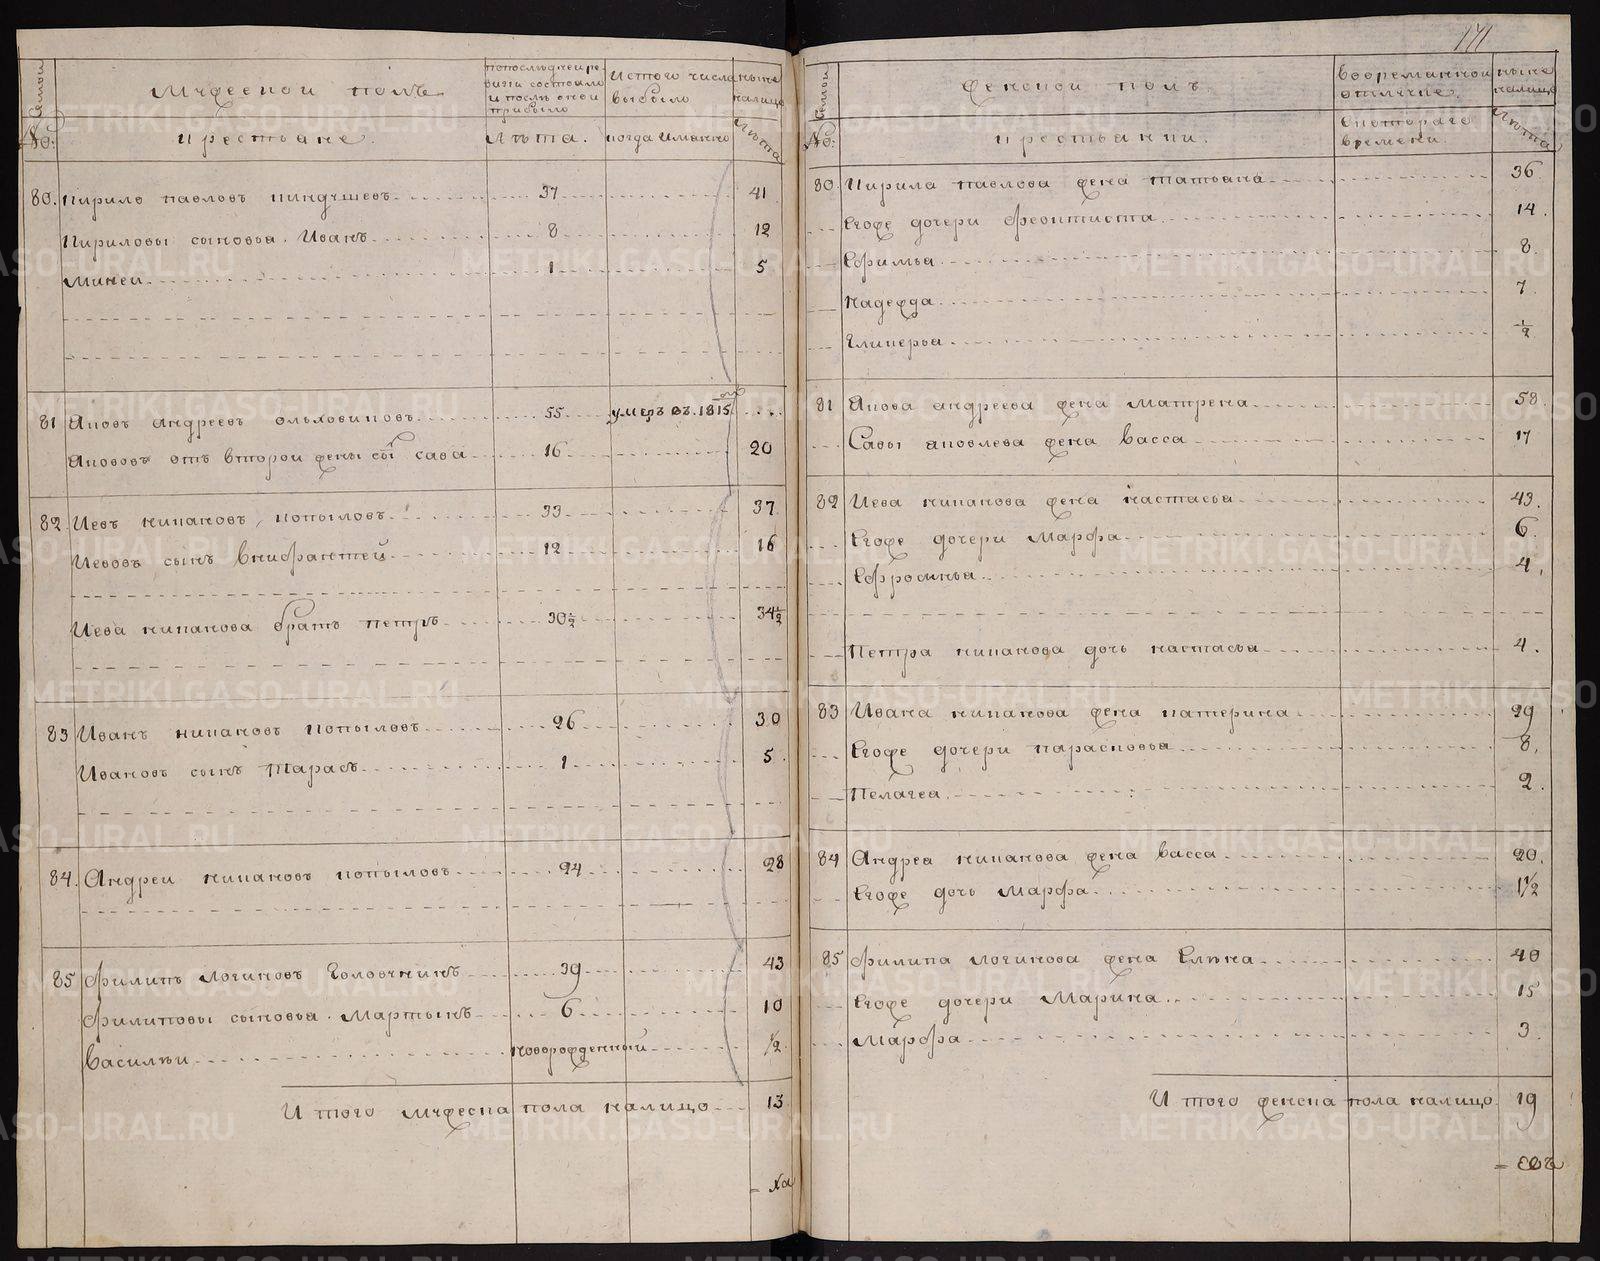 171
Семьи
Мужескои полъ
попослѣднеи ре
визи состояло
и послѣ онои
прибыло
Истого числа
выбыло
ныне
налицо
№:
крестьяне.
Лѣта.
когда Имянно
Лѣта
80. Кирило павловъ 37 41
Кириловы сыновья. Иванъ 8 12
Минеи 1 5
81 Яковъ андреевъ ольховиковъ 55 умеръ въ. 1815
Якововъ отъ второи жены сы савa 16 20
82 Иевъ никановъ копыловъ 33 37
Иевовъ сынъ Внифантей 12 16
Иева никанова братъ петръ 30½ 34½
83 Иванъ никановъ копыловъ 26 30
Ивановъ сынъ Тарасъ 1 5
84. Андреи никановъ копыловъ 24 28
85 Филипъ логиновъ Головчикъ 39 43
Филиповы сыновья. Мартынъ 6 10
Василѣи новорожденный ½
И того мужеска пола налицо 13
Семьи
Женскои полъ
вовременнои
отлучке.
ныне
налицо
№:
крестьянки.
Скотораго
времени
Лѣта
80 Кирила павлова жена татьяна 36
Егоже дочери Феоктиста 14
Ефимья 8
Надежда 7
Гликерья ½
81 Якова андреева жена матрена 58
Савы яковлева жена васса 17
82 Иева никанова жена настасья 43
Егоже дочери Марфа 6
Ефросинья 4
Петра никанова дочь настасья 4
83 Ивана никанова жена катерина 29
Егоже дочери парасковья 8
Пелагея 2
84 Андрея никанова жена васса 20
Егоже дочь марфа 1½
85 Филипа логинова жена Елѣна 40
Егоже дочери Марина 15
Марфа 3
И того женска пола налицо 19
METRIKI.GASO-URAL.RU